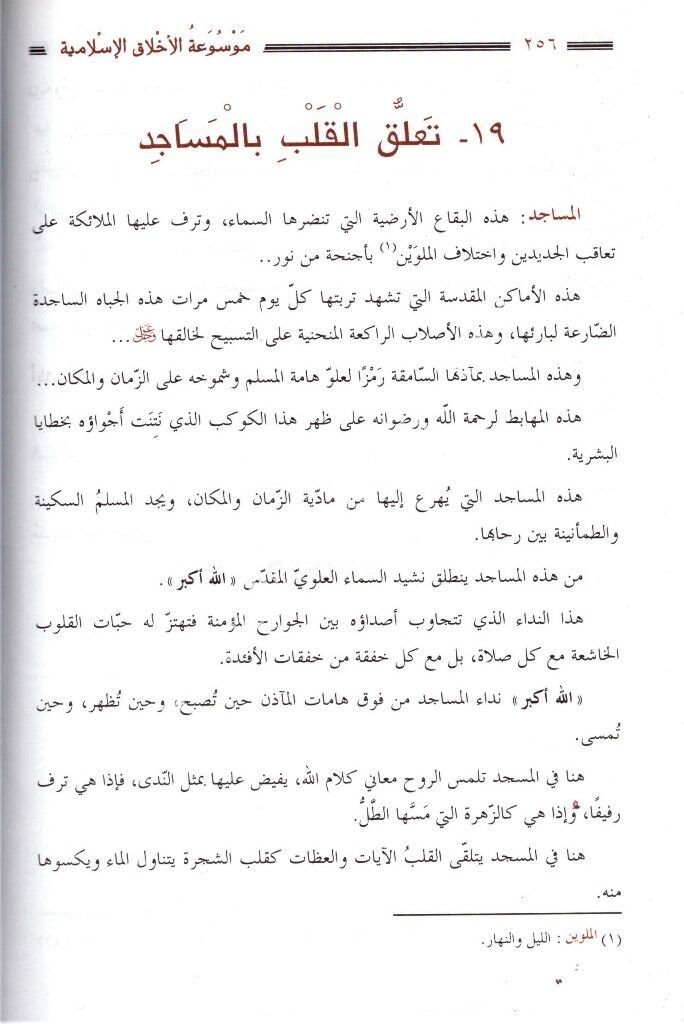 ٢٥٦ مَوْسُوعَةُ الأَخْلَاق الإِسْلامية
١٩- تَعَلُّق الْقَلْبِ بِالْمَسَاجِدِ
المساجد: هذه البقاع الأرضية التي تنضرها السماء، وترف عليها الملائكة على
تعاقب الجديدين واختلاف الملوَيْن(١) بأجنحة من نور..
هذه الأماكن المقدسة التي تشهد تربتها كلّ يوم خمس مرات هذه الجباه الساجدة
الضّارعة لبارئها، وهذه الأصلاب الراكعة المنحنية على التسبيح لخالقها عز وجل...
وهذه المساجد بمآذنها السّامقة رَمْزًا لعلوّ هامة المسلم وشموخه على الزّمان والمكان...
هذه المهابط لرحمة اللّه ورضوانه على ظهر هذا الكوكب الذي نَتِنَت أَجْواؤه بخطايا
البشرية.
هذه المساجد التي يُهرع إليها من مادّية الزّمان والمكان، ويجد المسلمُ السكينة
والطمأنينة بين رحابها.
من هذه المساجد ينطلق نشيد السماء العلويّ المقدّس «الله أكبر».
هذا النداء الذي تتجاوب أصداؤه بين الجوارح المؤمنة فتهتزّ له حبّات القلوب
الخاشعة مع كل صلاة، بل مع كل خفقة من خفقات الأفئدة.
«الله أكبر» نداء المساجد من فوق هامات المآذن حين تُصبح، وحين تُظهر، وحين
تُمسى.
هنا في المسجد تلمس الروح معاني كلام الله، يفيض عليها بمثل النّدى، فإذا هي ترف
رفيفًا، وإذا هي كالزّهرة التي مَسَّها الطَّلُّ.
هنا في المسجد يتلقّى القلبُ الآيات والعظات كقلب الشجرة يتناول الماء ويكسوها
منه.
(١) الملوين: الليل والنهار.